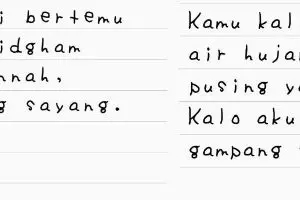 i bertemu
idgham
nnah,
g sayang.
Kamu kal
air hujan
pusing y
Kalo aku
gampang